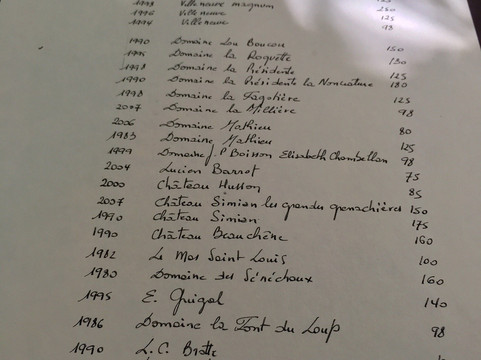 1998 Villeneuve magnum
1996 Villeneuve 260
1994 Villeneuve 125
98
1990 Domaine Lou Boucou 150
1995 Domaine la Roquette 130
1998 Domaine la Présidente 125
1990 Domaine la Présidente la Nonciature 180
1998 Domaine la Fagotière 125
2007 Domaine la Millière 98
2006 Domaine Mathieu 80
1983 Domaine Mathieu 125
1999 Domaine J.P Boisson Elisabeth Chambellan 98
2004 Lucien Barrot 75
2000 Château Husson 85
2007 Château Simian les grandes grenachières 150
1990 Château Simian 175
1990 Château Beauchêne 160
1982 Le Mas Saint Louis 100
1980 Domaine des Sénéchaux 160
1995 E. Guigal 140
1986 Domaine la Font du Loup 98
1990 L. C. Brotte